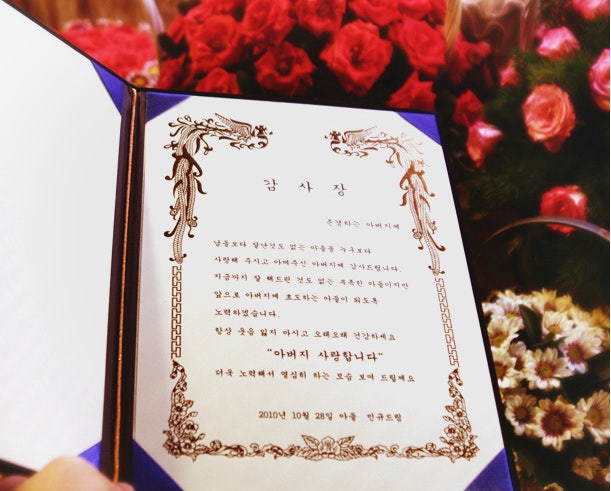 감 사 장
존경하는 아버지께
남들보다 잘난것도 없는 아들을 누구보다
사랑해 주시고 아껴주신 아버지께 감사드립니다.
지금까지 잘 해드린 것도 없는 부족한 아들이지만
앞으로 아버지께 효도하는 아들이 되도록
노력하겠습니다.
항상 웃음 잃지 마시고 오래오래 건강하세요
"아버지 사랑합니다"
더욱 노력해서 열심히 하는 모습 보여 드릴께요
2010년 10월 28일 아들 민규드림